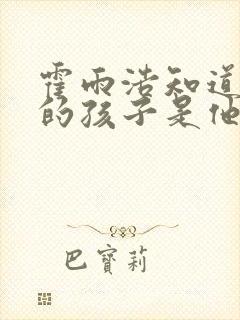 霍雨浩知道
的孩子是他
巴寶莉